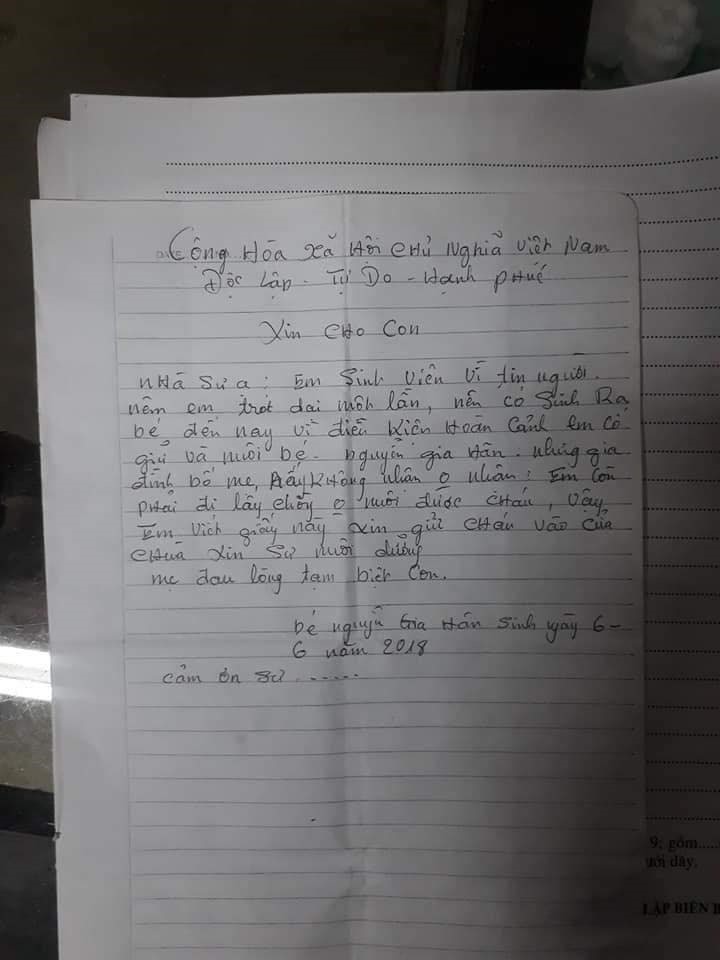 Cộng Hòa Xã Hội CHủ Nghĩa Việt Nam
Độc Lập - Tự Do - Hạnh PHúc
Xin CHo Con
nHà Sư a: Em Sinh Viên Vì tin người.
nêm em trót dai môt lần, nên có Sinh Ra
bé đến nay vì điều Kiên Hoàn Cảnh em Cố
giữ và nuôi bé - nguyễn gia Hân. nhưng gia
đình bố mẹ, ấy KHông nhân o nhân: Em Còn
PHải đi lấy chồng o nuôi được CHáu, Vậy
Em Vich giấy này Xin gửi CHáu Vào Cửa
CHuà Xin Sư nuôi dưỡng
mẹ đau lòng tạm biệt Con.
bé nguyễn Gia Hân Sinh ngày 6-
6 năm 2018
cảm ơn sư ......
9; gồm....
ưới đây,
LẬP BIÊN B